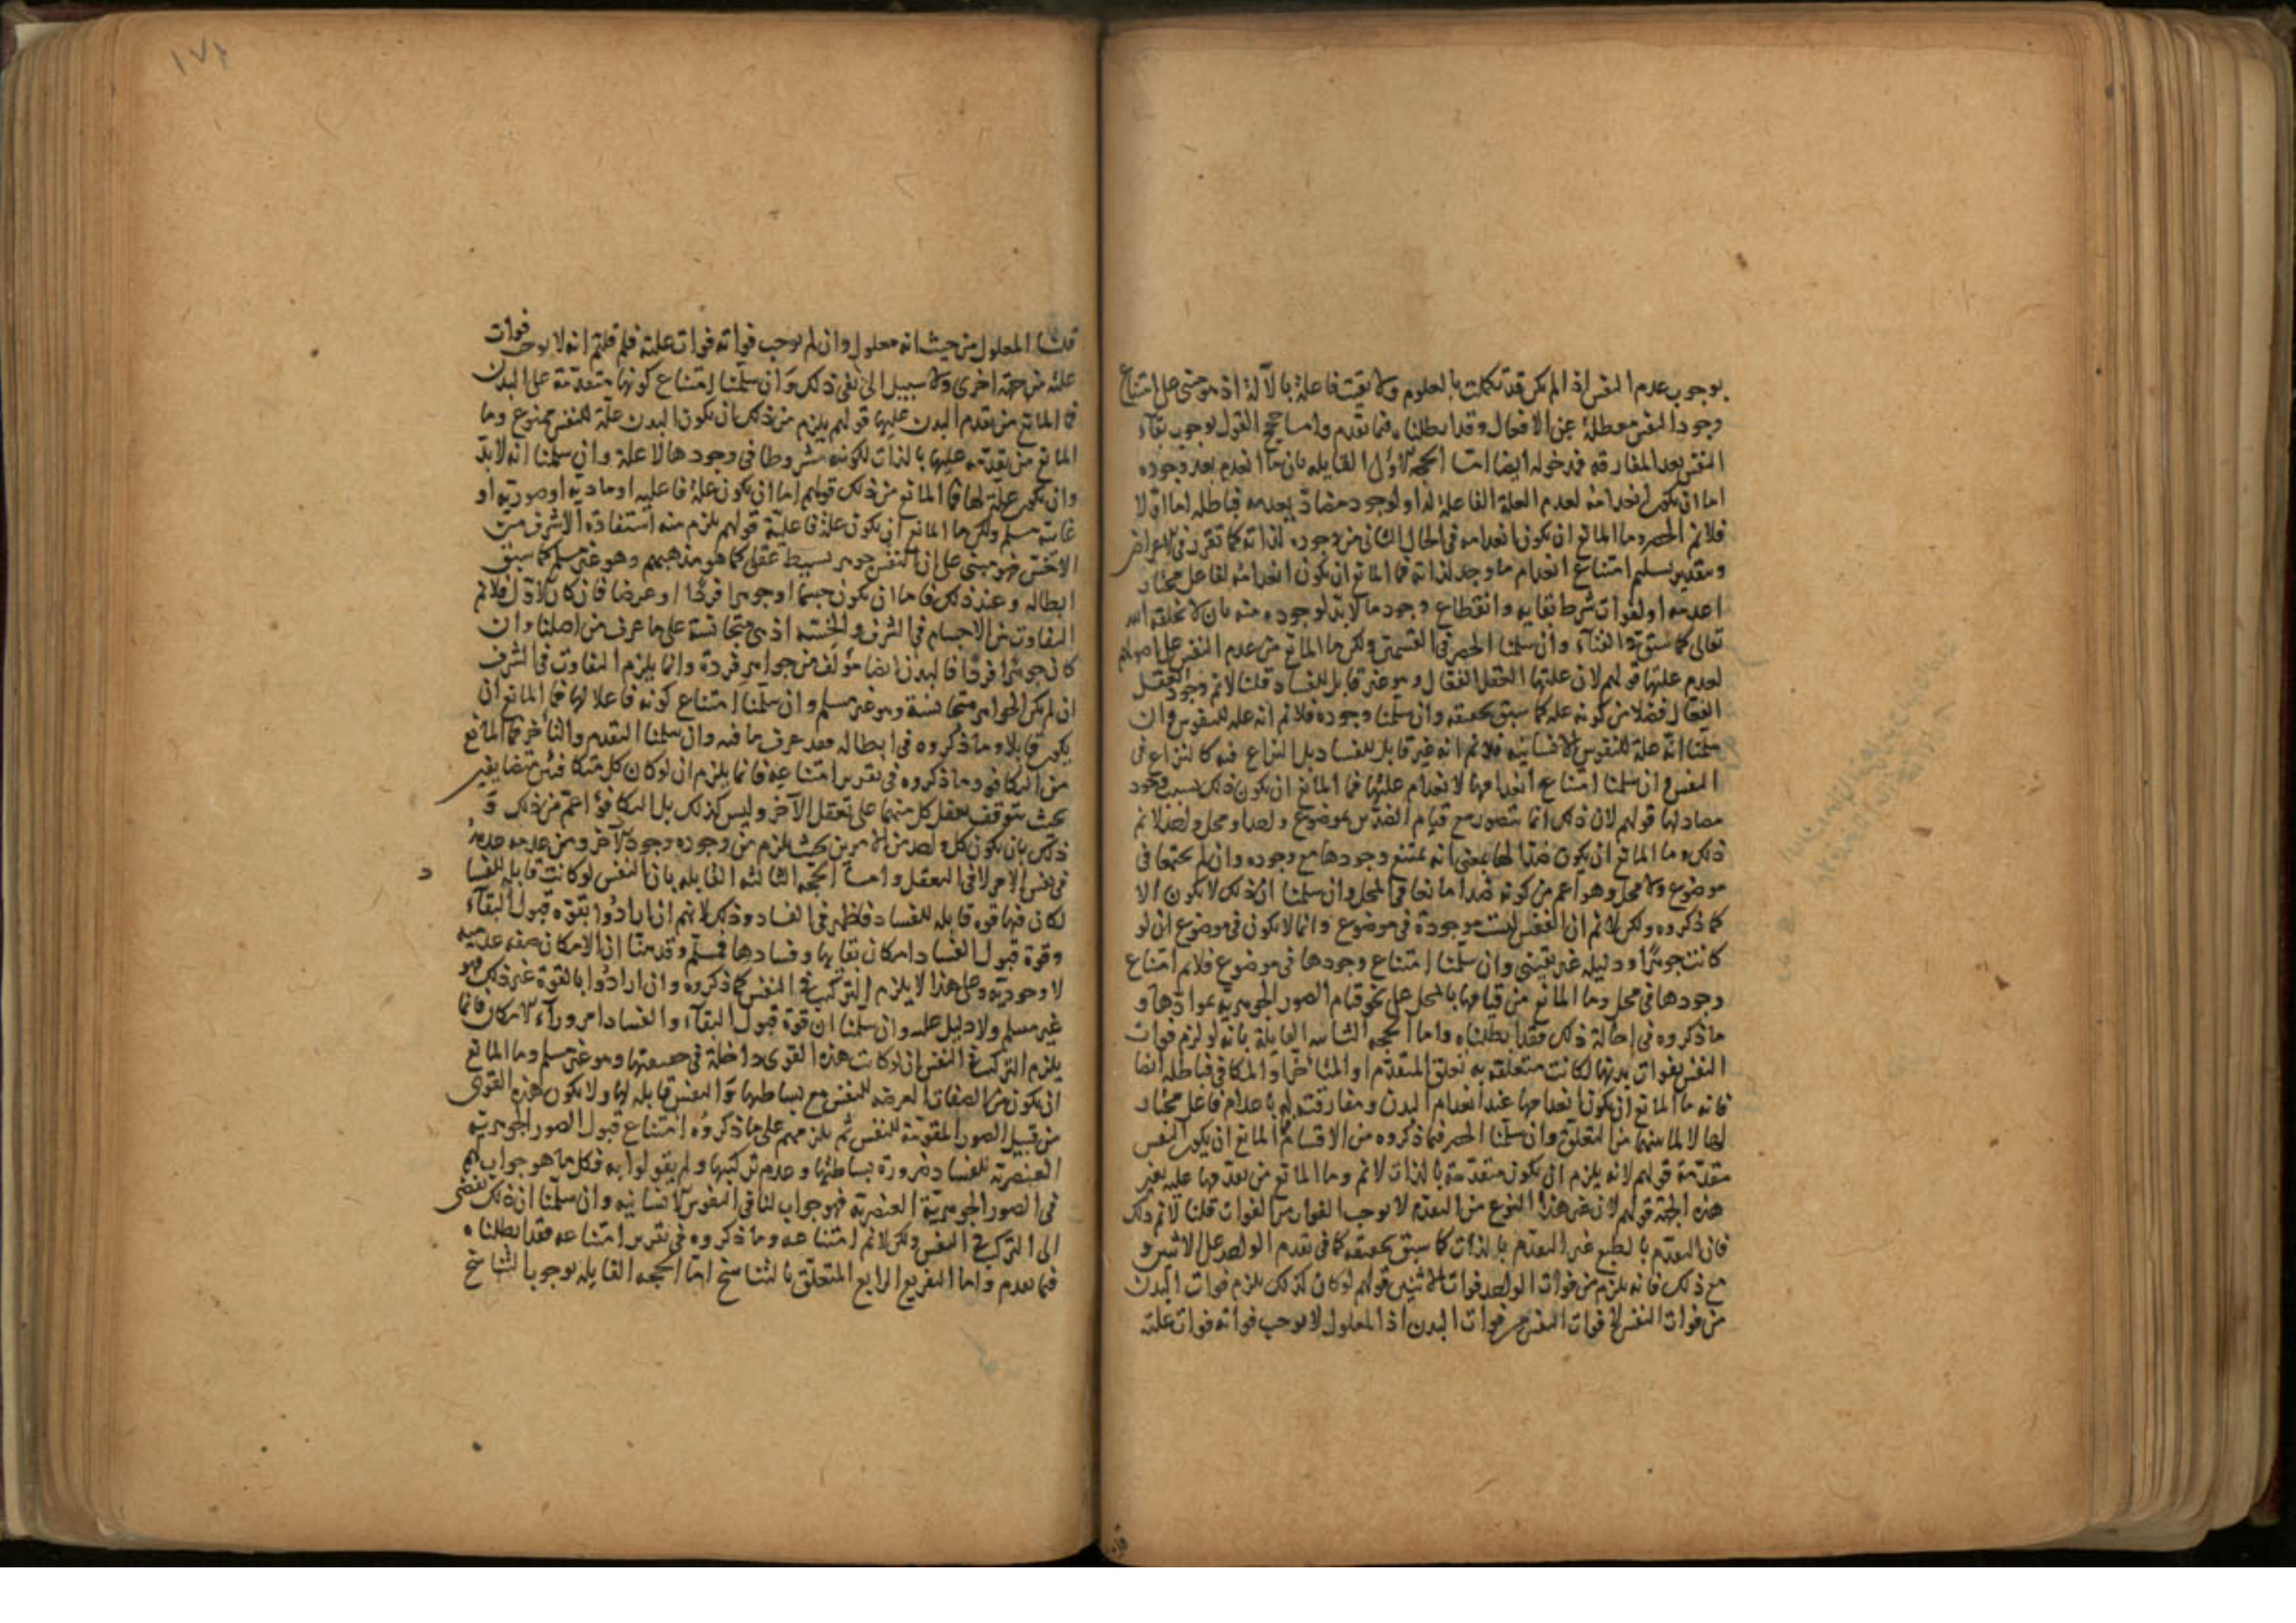 بوجوب عدم النفس اذا لم يكن قد تكملت بالعلوم ولا بقيت فاعلة بالآلة اذ هو مبنى على امتناع
وجود النفس معطلة عن الافعال وقد ابطلناه فيما تقدم واما حجج القول بوجوب بقاء
النفس بعد المفارقه فمدخوله ايضا اما الحجه الاولى القايله بان ما انعدم بعد وجوده
اما ان يكون انعدامه لعدم العلة الفاعلة له او لوجود مضاد يعدمه فباطله اما اولا
فلانم الحصر وما المانع ان يكون انعدامه فى الحال الثانى من وجوده لذاته كما تقرر فى الاعراض
وبتقدير تسليم امتناع انعدام ما وجد لذاته فما المانع ان يكون انعدامه لفاعل مختار
اعدمه او لفوات شرط بقايه وانقطاع وجود ما لا بد لوجوده منه بان لا يخلقه الله
تعالى كما سبق فى الفناء وان سلمنا الحصر فى القسمين ولكن ما المانع من عدم النفس على اصولهم
لعدم علتها قولهم لان علتها العقل الفعال وهو غير قابل للفساد قلنا لا نم وجود العقل
الفعال فضلا من كونه علة كما سبق تحقيقه وان سلمنا وجوده فلا نم انه علة للنفوس وان
سلمنا انه علة للنفوس الانسانيه فلا نم انه غير قابل للفساد بل النزاع فيه كالنزاع فى
النفس وان سلمنا امتناع انعدامها لانعدام علتها فما المانع ان يكون ذلك بسبب وجود
مضاد لها قولهم لان ذلك انما يتصور مع قيام الضدين بموضوع واحد او محل واحد لا نم
ذلك وما المانع ان يكون ضدا لها بمعنى انه يمتنع وجودها مع وجوده وان لم يجتمعا فى
موضوع ولا محل وهو اعم من كونه ضدا مانعا فى المحل وان سلمنا ان ذلك لا يكون الا
كما ذكروه ولكن لا نم ان النفس ليست موجودة فى موضوع وانما لا يكون فى موضوع ان لو
كانت جوهرًا ودليله غير يقينى وان سلمنا امتناع وجودها فى موضوع فلا نم امتناع
وجودها فى محل وما المانع من قيامها بالمحل على نحو قيام الصور الجوهرية بموادها و
ما ذكروه فى احالة ذلك فقد ابطلناه واما الحجه الثانيه القايلة بانه لو لزم فوات
النفس بفوات بدنها لكانت متعلقه به تعلق المتقدم او المتاخر او المكافى فباطله ايضا
فانه ما المانع ان يكون انعدامها عند انعدام البدن ومفارقته له باعدام فاعل مختار
لها لا لما بينهما من التعلق وان سلمنا الحصر فيما ذكروه من الاقسام فما المانع ان يكون النفس
متقدمة قولهم لانه يلزم ان يكون متقدمة بالذات لا نم وما المانع من تقدمها عليه بغير
هذه الجهة قولهم لان غير هذا النوع من التقدم لا يوجب الفوات من الفوات قلنا لا نم ذلك
فان التقدم بالطبع غير التقدم بالذات كما سبق تحقيقه كما فى تقدم الواحد على الاثنين و
مع ذلك فانه يلزم من فوات الواحد فوات الاثنين قولهم لو كان كذلك يلزم فوات البدن
من فوات النفس لا فوات النفس من فوات البدن اذ المعلول لا يوجب فواته فوات علته
قلنا المعلول من حيث انه معلول وان لم يوجب فواته فوات علته فلم قلتم انه لا يوجب فوات
علته من جهة اخرى ولا سبيل الى نفى ذلك وان سلمنا امتناع كونها متقدمة على البدن
فما المانع من تقدم البدن عليها قولهم يلزم من ذلك ان يكون البدن علة للنفس ممنوع وما
المانع من تقدمه عليها بالذات لكونه مشروطا فى وجودها لا علة وان سلمنا انه لا بد
وان يكون علة لها فما المانع من ذلك قولهم اما ان يكون علة فاعليه او مادية او صورية او
غائية مسلم ولكن ما المانع ان يكون علة فاعلية قولهم يلزم منه استفادة الاشرف من
الاخس فهو مبنى على ان النفس جوهر بسيط عقلى كما هو مذهبهم وهو غير مسلم كما سبق
ابطاله وعند ذلك فاما ان يكون جسما او جوهرا فردًا او عرضا فان كان الاول فلا نم
التفاوت بين الاجسام فى الشرف والخسة اذ هى متجانسة على ما عرف من اصلنا وان
كان جوهرًا فردًا فالبدن ايضا مؤلف من جواهر فردة وانما يلزم التفاوت فى الشرف
ان لم يكن الجواهر متجانسة وهو غير مسلم وان سلمنا امتناع كونه فاعلا لها فما المانع ان
يكون قابلا وما ذكروه فى ابطاله فقد عرف ما فيه وان سلمنا التقدم والتأخر فما المانع
من التكافؤ وما ذكروه فى تقرير امتناعه فانما يلزم ان لو كان كل متكافئين متضايفين
بحيث يتوقف تعقل كل منهما على تعقل الآخر وليس كذلك بل التكافؤ اعم من ذلك و
ذلك بان يكون كل واحد من الامرين بحيث يلزم من وجوده وجود الآخر ومن عدمه عدمه
فى نفس الامر لا فى التعقل واما الحجه الثالثه القايله بان النفس لو كانت قابله للفسا د
لكان فيها قوة قابله للفساد فاظهر فى الفساد وذلك لانهم ان ارادوا بقوة قبول البقاء
وقوة قبول الفساد امكان بقايها وفسادها فمسلم وقد بينا ان الامكان صفه عدميه
لا وجوديه وعلى هذا لا يلزم التركيب فى النفس كما ذكروه وان ارادوا بالقوة غير ذلك فهو
غير مسلم ولا دليل عليه وان سلمنا ان قوة قبول البقاء والفساد امر وراء الامكان فانما
يلزم التركيب فى النفس ان لو كانت هذه القوى داخلة فى حقيقتها وهو غير مسلم وما المانع
ان يكون من الصفات العرضيه للنفس مع بساطتها والنفس قابله لها ولا يكون هذه القوى
من قبيل الصور المقومة للنفس ثم يلزمهم على ما ذكروه امتناع قبول الصور الجوهرية
العنصرية للفساد ضرورة بساطتها وعدم تركبها ولم يقولوا به فكل ما هو جواب لهم
فى الصور الجوهرية العنصرية فهو جواب لنا فى النفوس الانسانيه وان سلمنا ان ذلك يفضى
الى التركيب فى النفس ولكن لا نم امتناعه وما ذكروه فى تقرير امتناعه فقد ابطلناه
فيما تقدم واما التفريع الرابع المتعلق بالتناسخ اما الحجه القايله بوجوب التناسخ